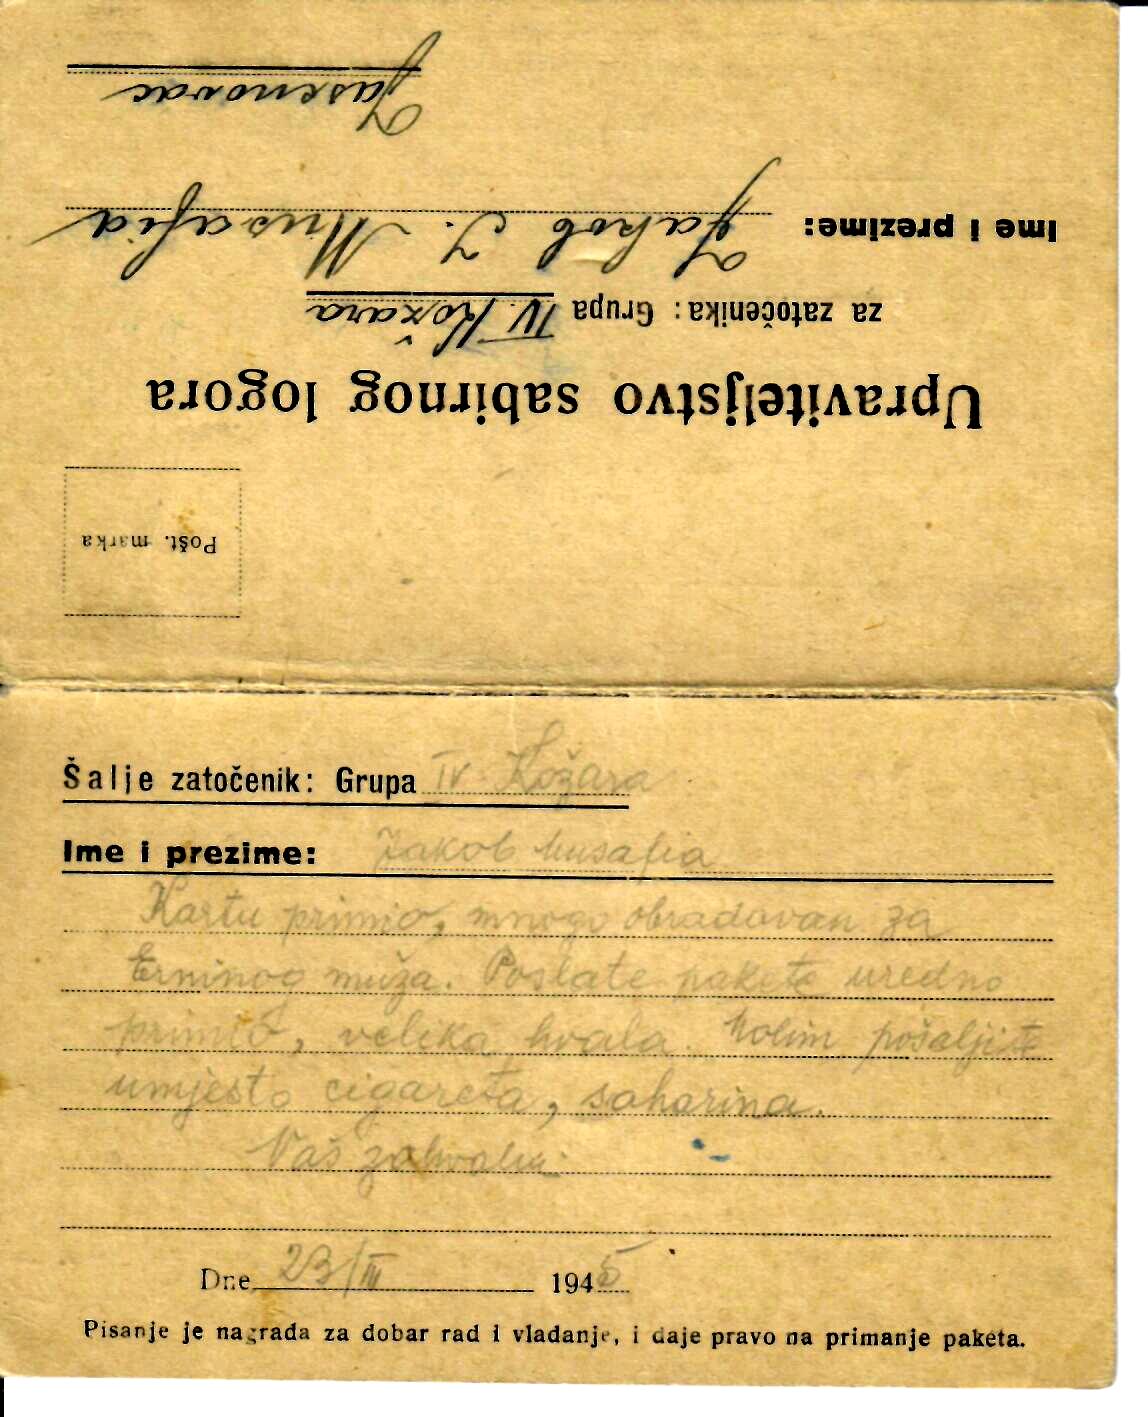 Jasenovac
Ime i prezime: Jakob J. Musafia
za zatočenika: Grupa IV. Kožara
Upraviteljstvo sabirnog logora
Pošt. marka
Šalje zatočenik: Grupa IV Kožara
Ime i prezime: Jakob Musafia
Kartu primio, mnogo obradovan za
Erninog muža. Poslate pakete uredno
primio, velika hvala. Molim pošaljite
umjesto cigareta, saharina.
Vaš zahvalni
Dne 23/III 1945
Pisanje je nagrada za dobar rad i vladanje, i daje pravo na primanje paketa.